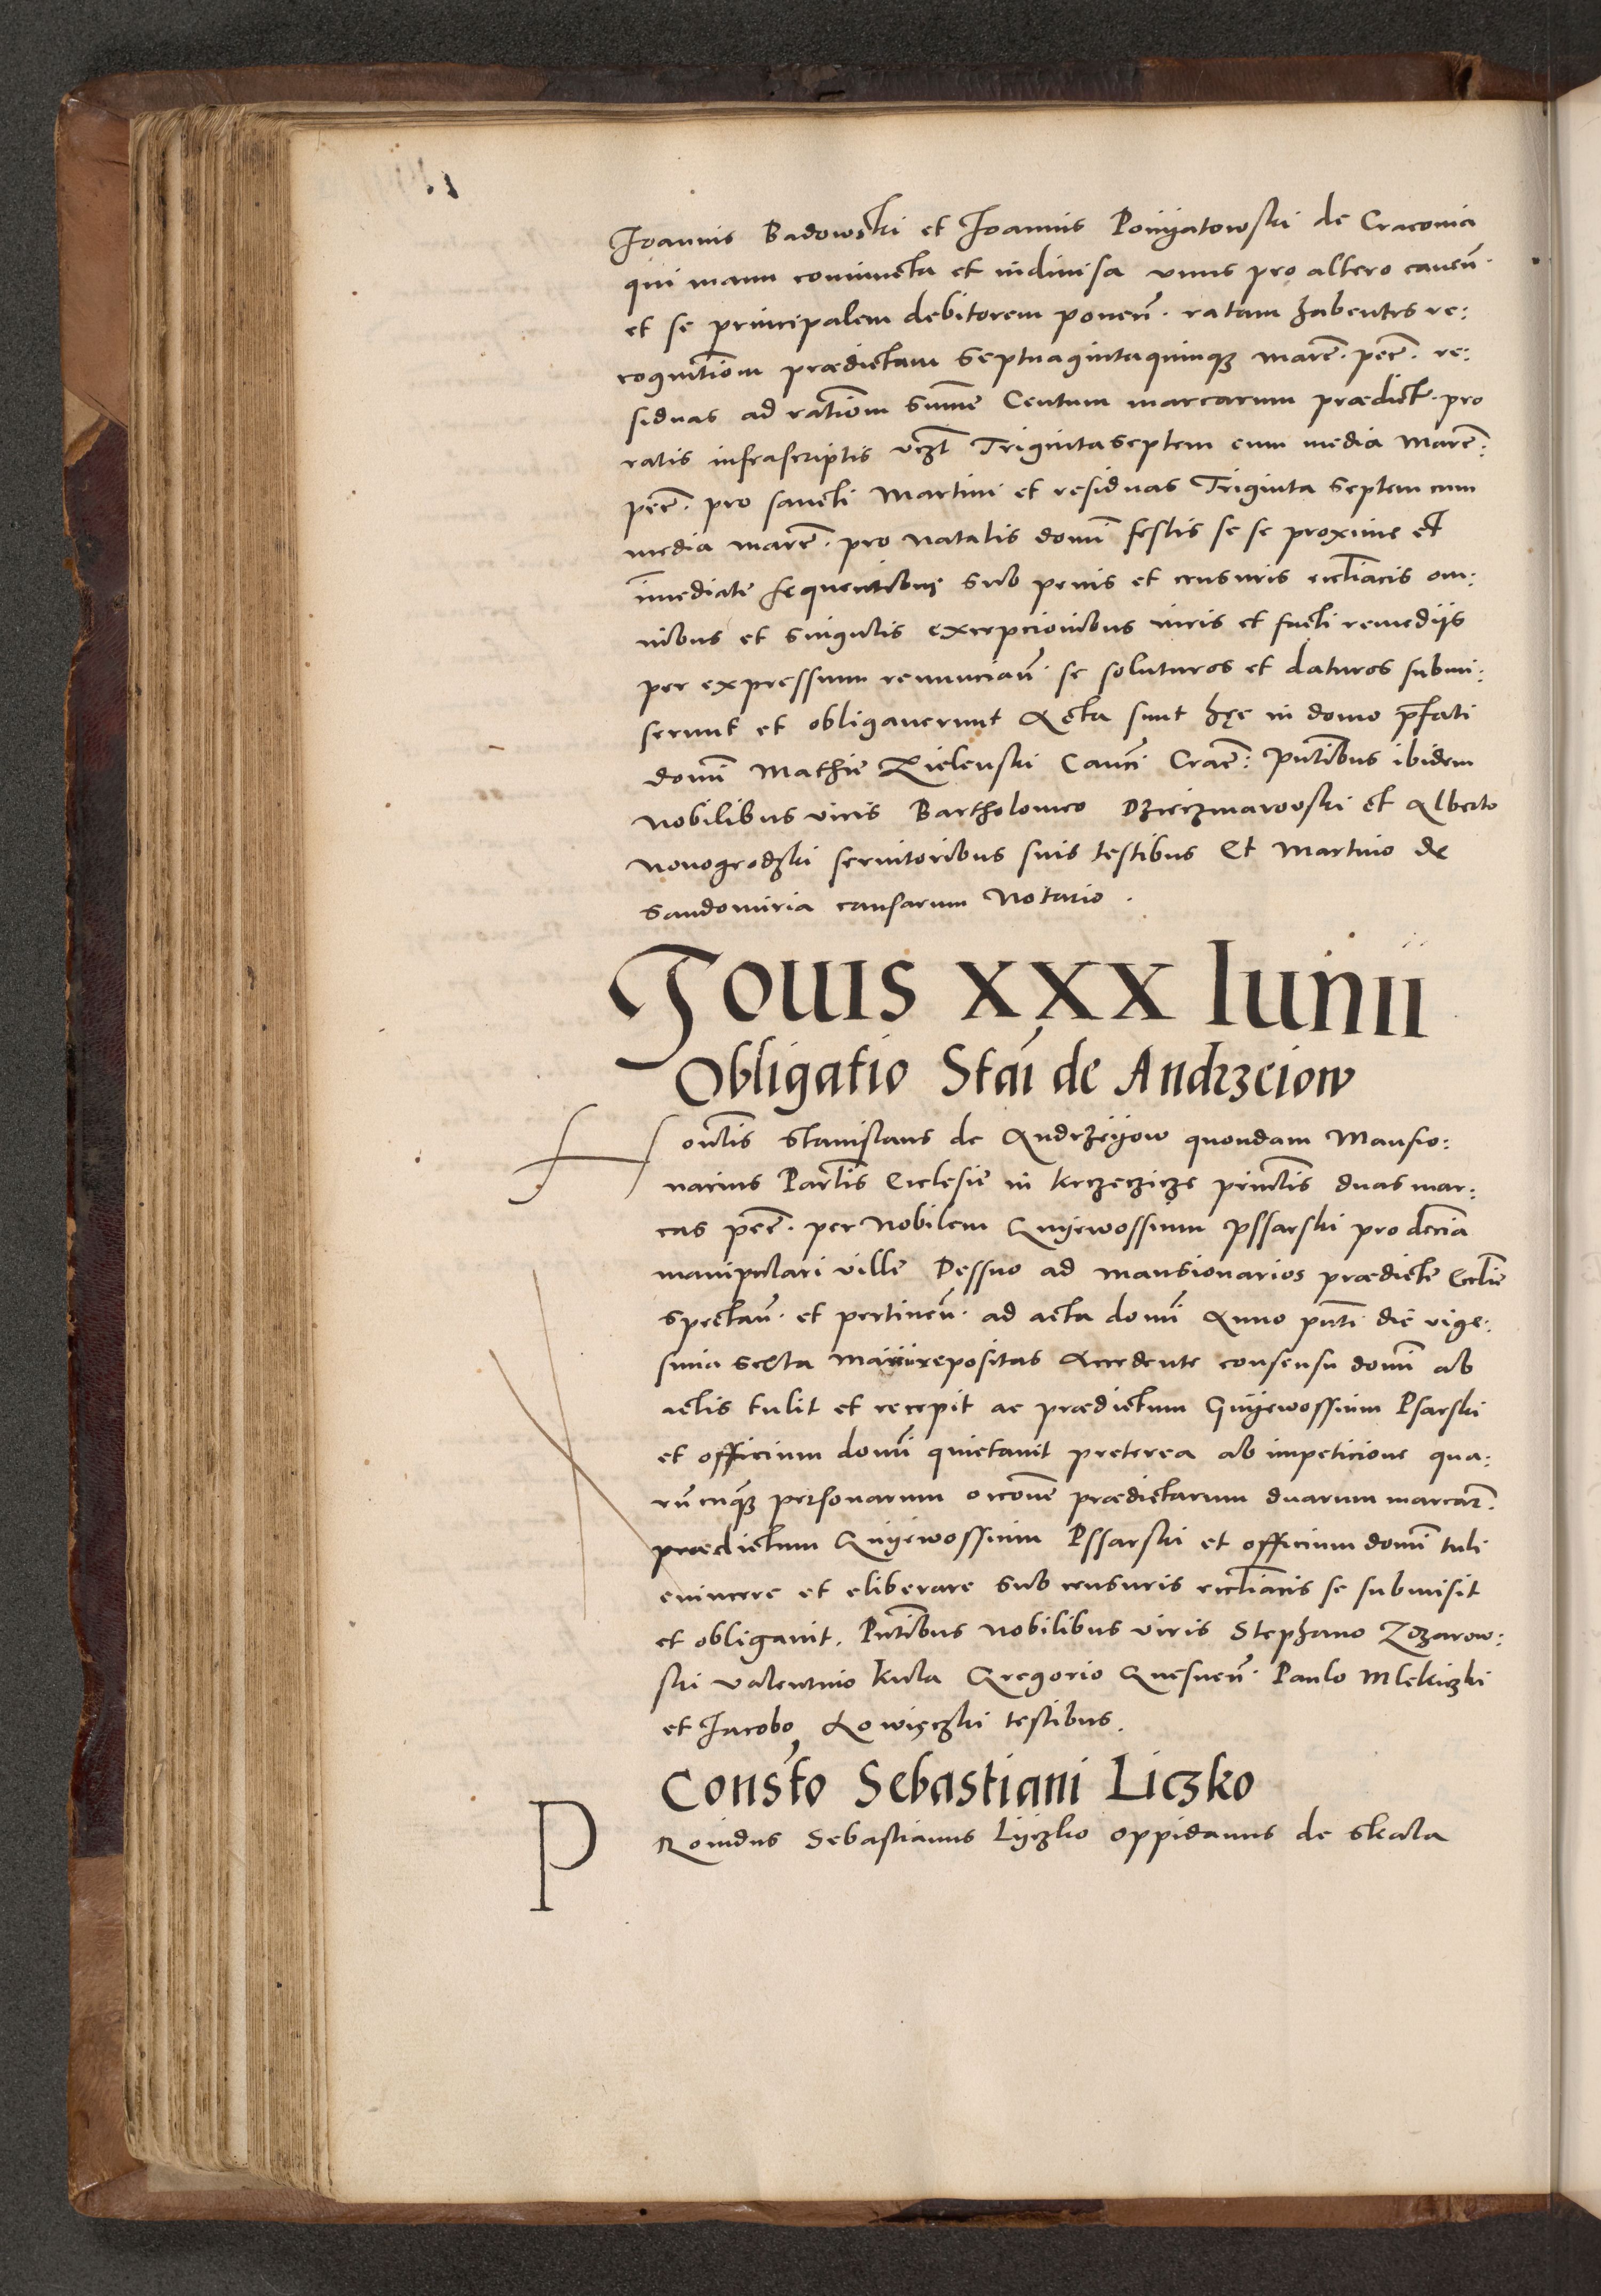 Joannis Badowski et Joannis Poniyatowski de Cracovia
qui manu coniuncta et indivisa unus pro altero caven̄.
et se principalem debitorem ponen̄. ratam habentes re:
cognitiōm prædictam Septuagintaquinqz marc̄. pec̄. re:
siduas ad ratiōm sum̄e Centum marcarum prædict. pro
ratis infrascriptis vcz̄t Trigintaseptem cum media marc̄:
pec̄. pro sancti Martini et residuas Triginta septem cum
media marc̄. pro Natalis domī festis se se proxime et
im̄ediate sequentibus sub penis et censuris eccl̄iacis om:
nibus et singulis excepcionibus iuris et facti remedijs
per expressum renuncian̄. se soluturos et daturos submi:
serunt et obligaverunt Acta sunt hęc in domo p̄fati
domī Mathie Zielenski Canc̄i Crac̄: Pn̄tibus ibidem
Nobilibus viris Bartholomeo Dzierzmarowski et Alberto
Novogrodzki servitoribus suis testibus Et Martino de
Sandomiria causarum Notario.
Jovis XXX Iunii
Obligatio Staī de Andrzeiow
Hon̄tis Stanislaus de Andrzeyow quondam Mansio:
narius Par̄tis Ecclesie in Krzeczicze princ̄tis duas mar:
cas pec̄. per Nobilem Gnyewossium Pssarski pro decīa
manipulari ville Dessno ad mansionarios prædicte Eccl̄ie
spectan̄. et pertinen̄. ad acta domī Anno pn̄ti die vige:
sima sexta Maii repositas Accedente consensu domī ab
actis tulit et recepit ac prædictum Gnyewossium Psarski
et officium domī quietavit preterea ab impeticione qua:
rūcuqz personarum occ̄one prædictarum duarum marcar̄.
prædictum Gnyewossium Pssarski et officium domī tuli
evincere et eliberare sub censuris eccl̄iacis se submisit
et obligavit. Pn̄tibus nobilibus viris Stephano Zozarow:
ski Valentino Kula Gregorio Gnesnen̄. Paulo Mlekiczki
et Jacobo Lowięczki testibus.
Cons̄to Sebastiani Liczko
PRovidus Sebastianus Lyczko oppidanus de Skala